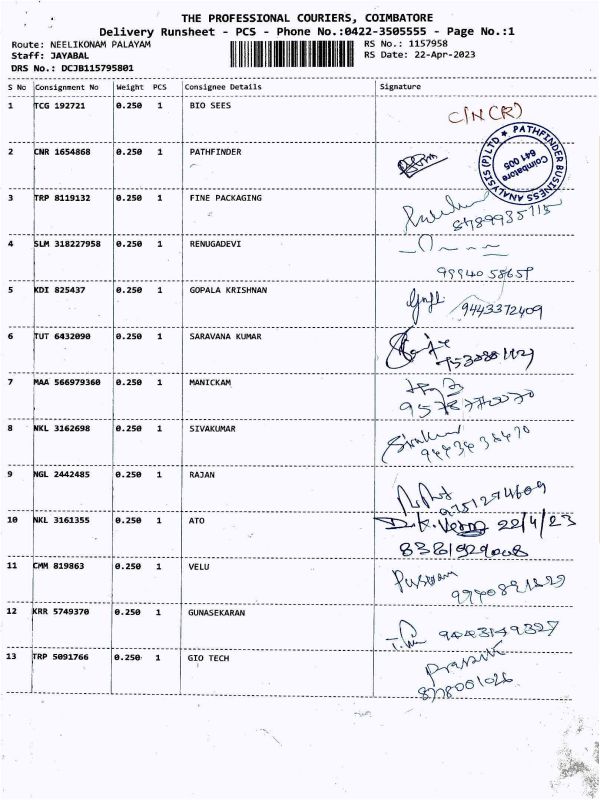 THE PROFESSIONAL COURIERS, COIMBATORE
Delivery Runsheet - PCS - Phone No.:0422-3505555 - Page No.:1
Route: NEELIKONAM PALAYAM
RS No.: 1157958
Staff: JAYABAL
RS Date: 22-Apr-2023
DRS No.: DCJB115795801
S No Consignment No Weight PCS Consignee Details Signature
1 TCG 192721 0.250 1 BIO SEES C/N(R)
PATHFINDER BUSINESS ANALYSIS (P) LTD ★
Coimbatore
641 005
2 CNR 1654868 0.250 1 PATHFINDER
3 TRP 8119132 0.250 1 FINE PACKAGING
4 SLM 318227958 0.250 1 RENUGADEVI
99940 58659
5 KDI 825437 0.250 1 GOPALA KRISHNAN
9443372409
6 TUT 6432090 0.250 1 SARAVANA KUMAR
7 MAA 566979360 0.250 1 MANICKAM
8 NKL 3162698 0.250 1 SIVAKUMAR
Sivakumar
9 NGL 2442485 0.250 1 RAJAN
9751274609
10 NKL 3161355 0.250 1 ATO 22/4/23
11 CMM 819863 0.250 1 VELU
12 KRR 5749370 0.250 1 GUNASEKARAN
9443149327
13 TRP 5091766 0.250 1 GIO TECH
8778001026